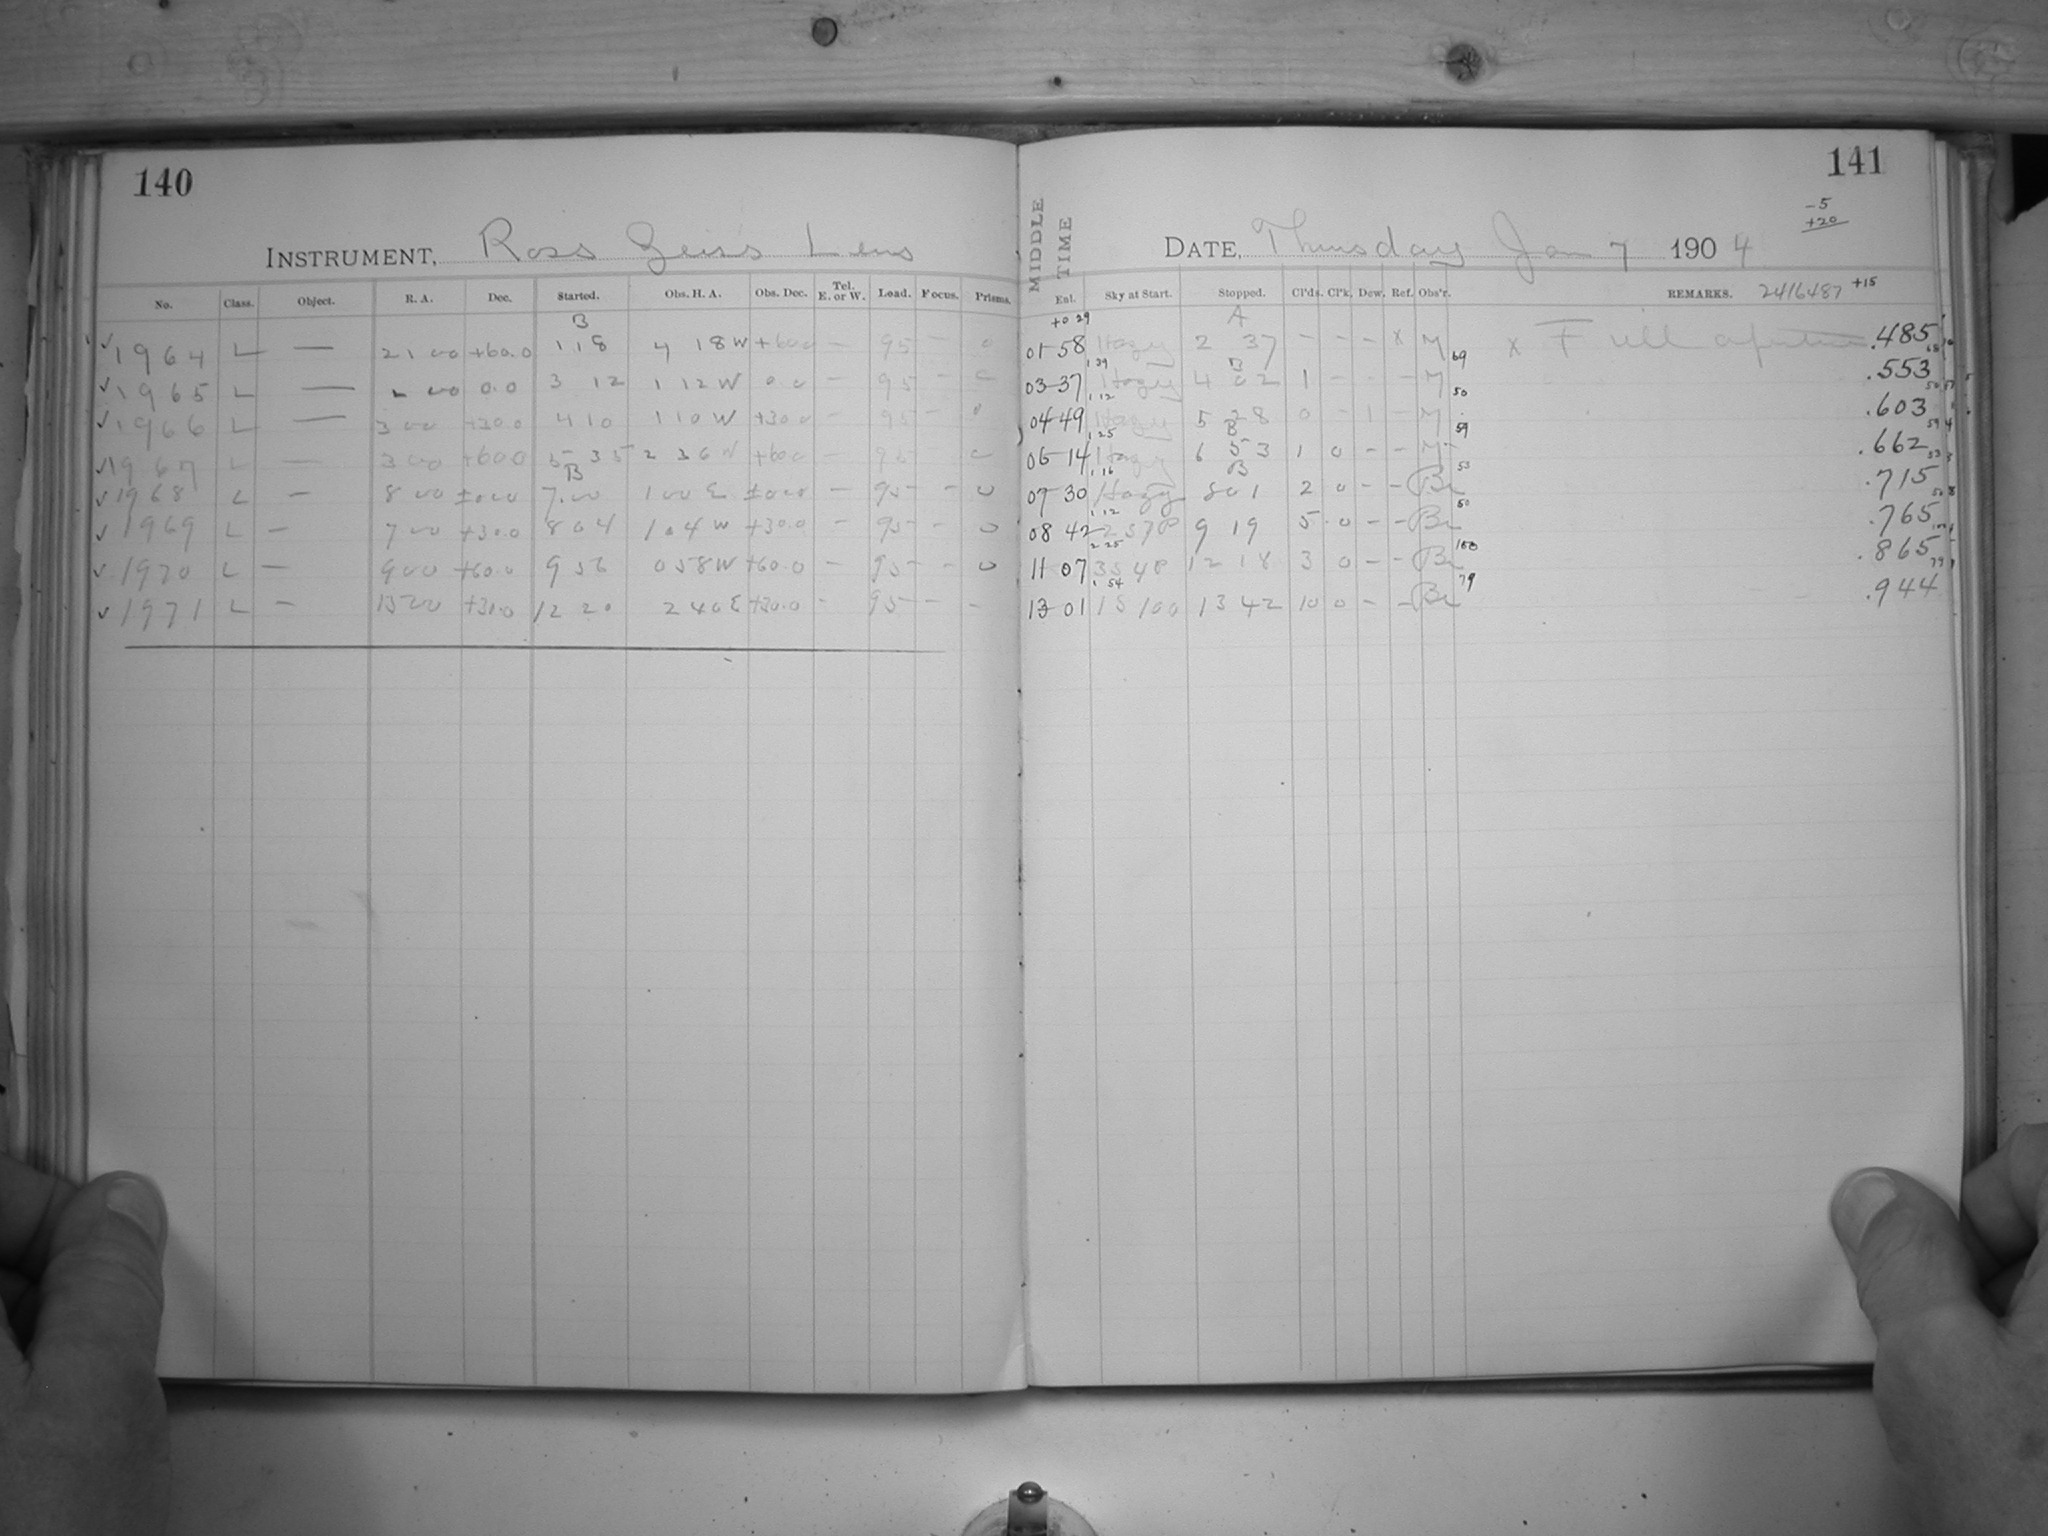 140
INSTRUMENT, Ross Zeiss Lens
No. Class. Object. R. A. Dec. Started. Obs. H. A. Obs. Dec. Tel. E. or W. Load. Focus. Prisms.
B
✓ 1964 L — 21 00 +60.0 1 18 4 18 W +60.0 — 95 — 0
✓ 1965 L — 2 00 0.0 3 12 1 12 W 0.0 — 95 —
✓ 1966 L — 3 00 +30.0 4 10 1 10 W +30.0 — 95 — 0
✓ 1967 L — 3 00 +60.0 5 35 2 36 W +60.0 — 95 —
B
✓ 1968 L — 8 00 ±0.00 7.00 1 00 E ±0.00 — 95 — — 0
✓ 1969 L — 7 00 +30.0 8 04 1 04 W +30.0 — 95 — 0
✓ 1970 L — 9 00 +60.0 9 56 0 58 W +60.0 — 95 — — 0
✓ 1971 L — 15 00 +30.0 12 20 2 40 E +30.0 — 95 — —
141
-5
+20
MIDDLE TIME
DATE, Thursday Jan 7 1904
Ent. Sky at Start. Stopped. Cl'ds. Cl'k. Dew. Ref. Obs'r. REMARKS. 2416487 +15
+0 29 A
01 58 Hazy 2 37 — — — x M 69 x Full aperture .485
1 39 B
03 37 Hazy 4 02 1 — — — M 50 .553
1 12
04 49 Hazy 5 28 0 — 1 — M 59 .603
1 25 B
06 14 Hazy 6 53 1 0 — — M 53 .662
1 16 B
07 30 Hazy 8 01 2 0 — — Br 50 .715
1 12
08 42 9 19 5 0 — — Br 100 .765
2 25
11 07 12 18 3 0 — — Br 79 .865
1 54
13 01 15 100 13 42 10 0 — — Br .944